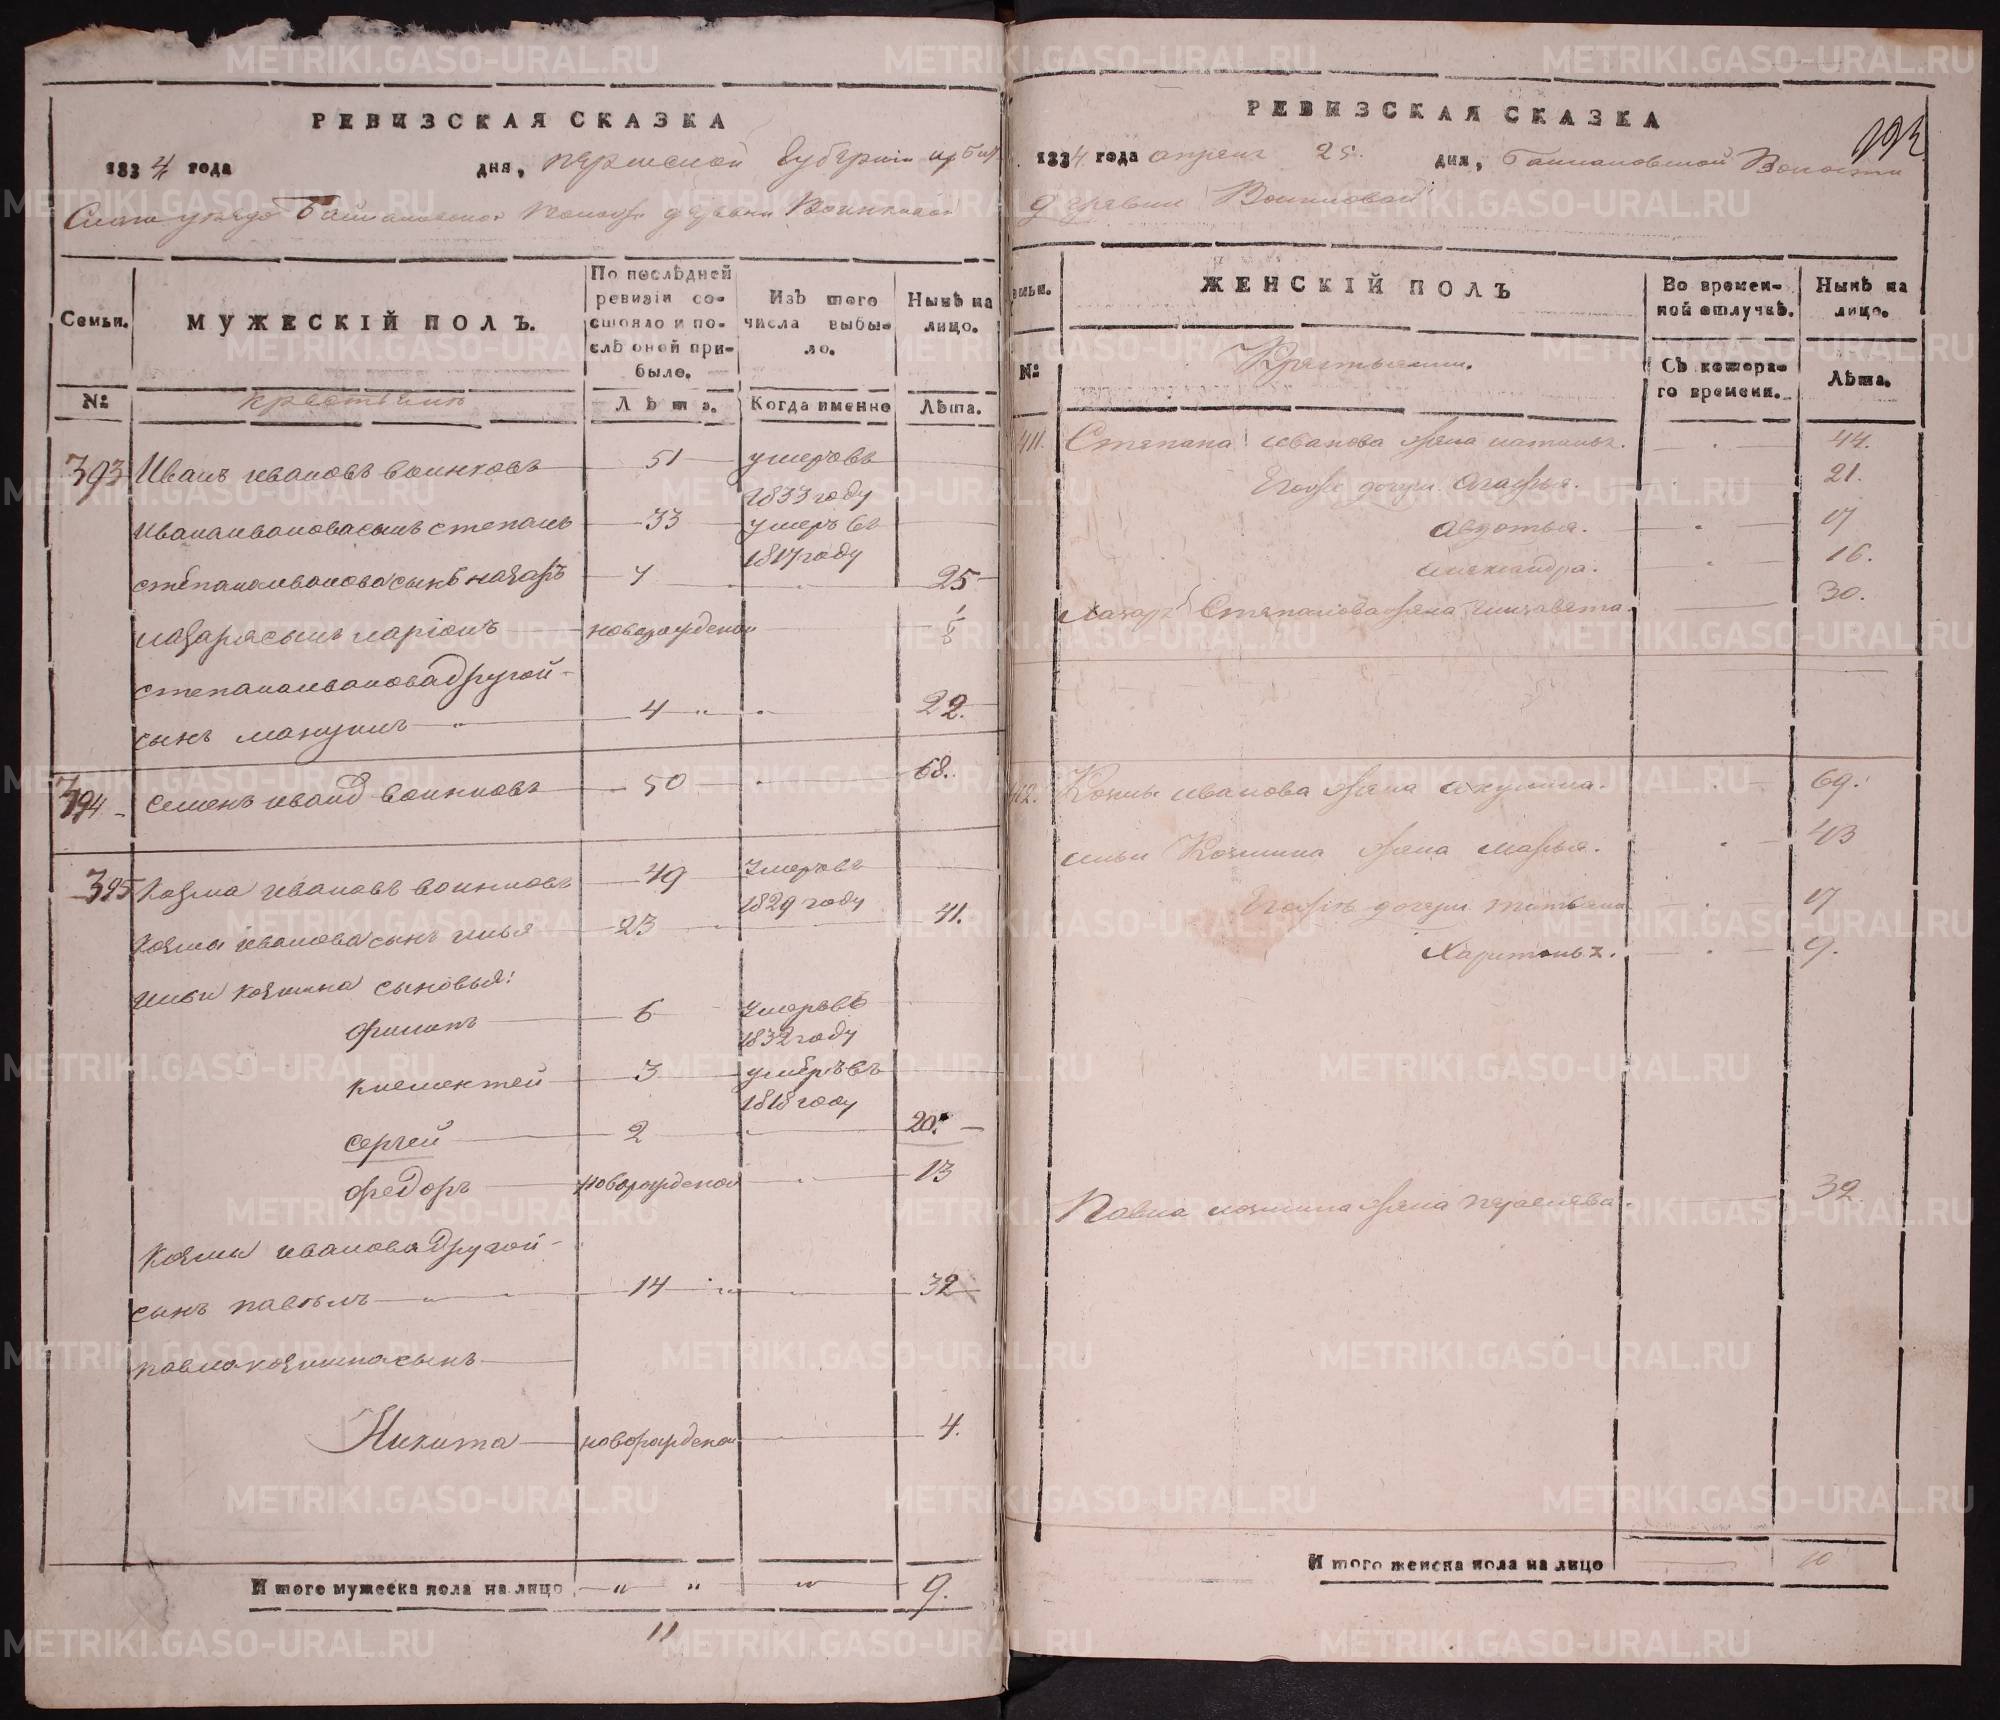 РЕВИЗСКАЯ СКАЗКА
1834 года дня, пермской губерніи ирбит
Байкаловской деревни
Семьи.
МУЖЕСКІЙ ПОЛЪ.
По послѣдней ревизіи состояло и послѣ оной прибыло.
Изъ того числа выбыло.
Нынѣ на лицо.
№ крестьяне Лѣта. Когда именно Лѣта.
393 Иванъ ивановъ воинковъ 51 умеръ въ 1833 году
ивана иванова сынъ степанъ 33 умеръ въ 1817 году
степана иванова сынъ назаръ 7 25
назара сынъ ларіонъ новорожденой
степана иванова другой
сынъ 4 22.
394 семенъ иванов воинковъ 50 68.
395 козма ивановъ воинковъ 49 умеръ въ 1829 году
козма иванова сынъ илья 23 41.
ильи козмина сыновья:
филипъ 6 умеръ въ 1832 году
клементей 3 умеръ въ 1818 году
сергей 2 20.
федоръ новорожденой 13
козмы иванова другой
сынъ павелъ 14 32
павла козмина сынъ
Никита новорожденой 4.
Итого мужеска пола на лицо 9.
11
РЕВИЗСКАЯ СКАЗКА
193
1834 года апреля 25. дня, Байкаловской Волости
деревни
ЖЕНСКІЙ ПОЛЪ
Во временной отлучкѣ.
Нынѣ на лицо.
№ Крестьянии.
Съ котораго времени.
Лѣта.
411. Степана иванова жена 44.
дочери Агафья. 21.
Авдотья. 17
александра. 16.
Назара Степанова жена елизавета. 30.
412. Козмы иванова жена акулина. 69.
ильи Козмина жена марья. 43
дочери татьяна 17
9.
Павла козмина жена 32.
Итого женска пола на лицо 10
METRIKI.GASO-URAL.RU